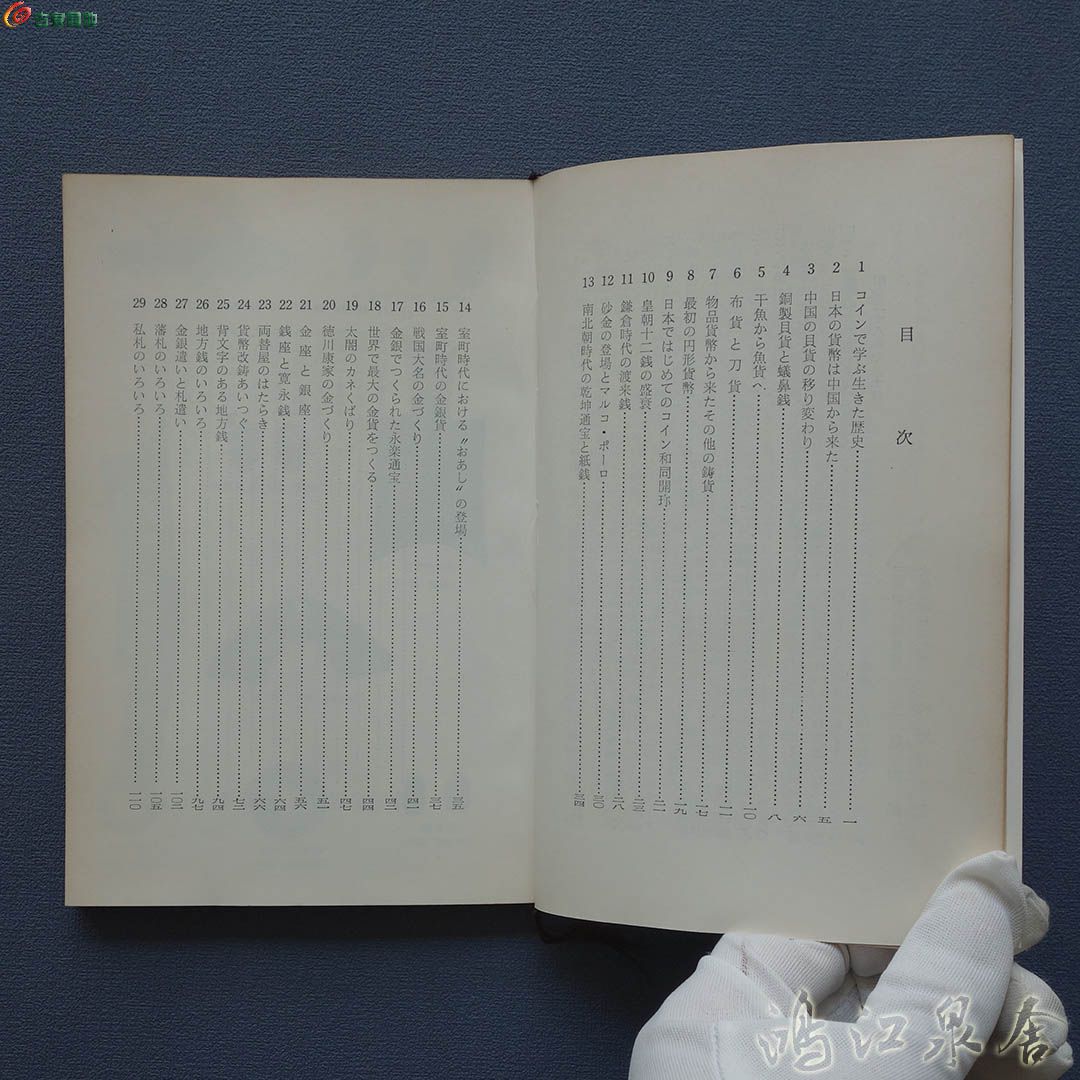 目次
1 コインで学ぶ生きた歴史 一
2 日本の貨幣は中国から来た 五
3 中国の貝貨の移り変わり 六
4 銅製貝貨と蟻鼻銭 八
5 干魚から魚貨へ 一〇
6 布貨と刀貨 一一
7 物品貨幣から来たその他の鋳貨 一七
8 最初の円形貨幣 一九
9 日本ではじめてのコイン和同開珎 二一
10 皇朝十二銭の盛衰 二三
11 鎌倉時代の渡来銭 二八
12 砂金の登場とマルコ・ポーロ 三〇
13 南北朝時代の乾坤通宝と紙銭 三四
14 室町時代における〝おあし〟の登場 三五
15 室町時代の金銀貨 三七
16 戦国大名の金づくり 四一
17 金銀でつくられた永楽通宝 四二
18 世界で最大の金貨をつくる 四四
19 太閤のカネくばり 四七
20 徳川康家の金づくり 五一
21 金座と銀座 五六
22 銭座と寛永銭 六四
23 両替屋のはたらき 六六
24 貨幣改鋳あいつぐ 七二
25 背文字のある地方銭 九四
26 地方銭のいろいろ 九七
27 金銀遣いと札遣い 一〇二
28 藩札のいろいろ 一〇五
29 私札のいろいろ 一一〇
鴻江泉舎